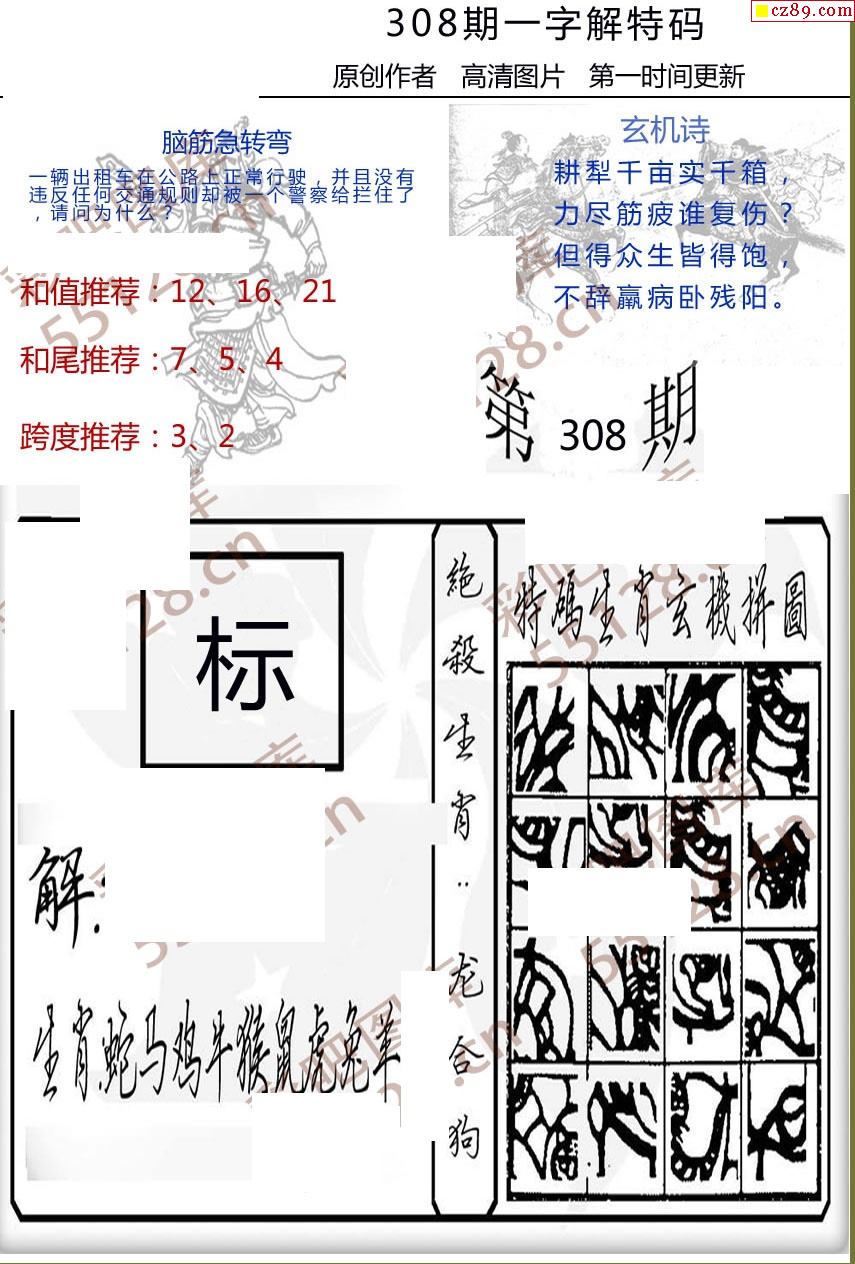 308期一字解特码
cz89.com
原创作者 高清图片 第一时间更新
脑筋急转弯
一辆出租车在公路上正常行驶，并且没有
违反任何交通规则却被一个警察给拦住了
，请问为什么？
和值推荐：12、16、21
和尾推荐：7、5、4
跨度推荐：3、2
玄机诗
耕犁千亩实千箱，
力尽筋疲谁复伤？
但得众生皆得饱，
不辞羸病卧残阳。
第 308 期
标
解：
生肖蛇马鸡牛猴鼠虎兔羊
絶殺生肖：龙合狗
特碼生肖玄機拼圖